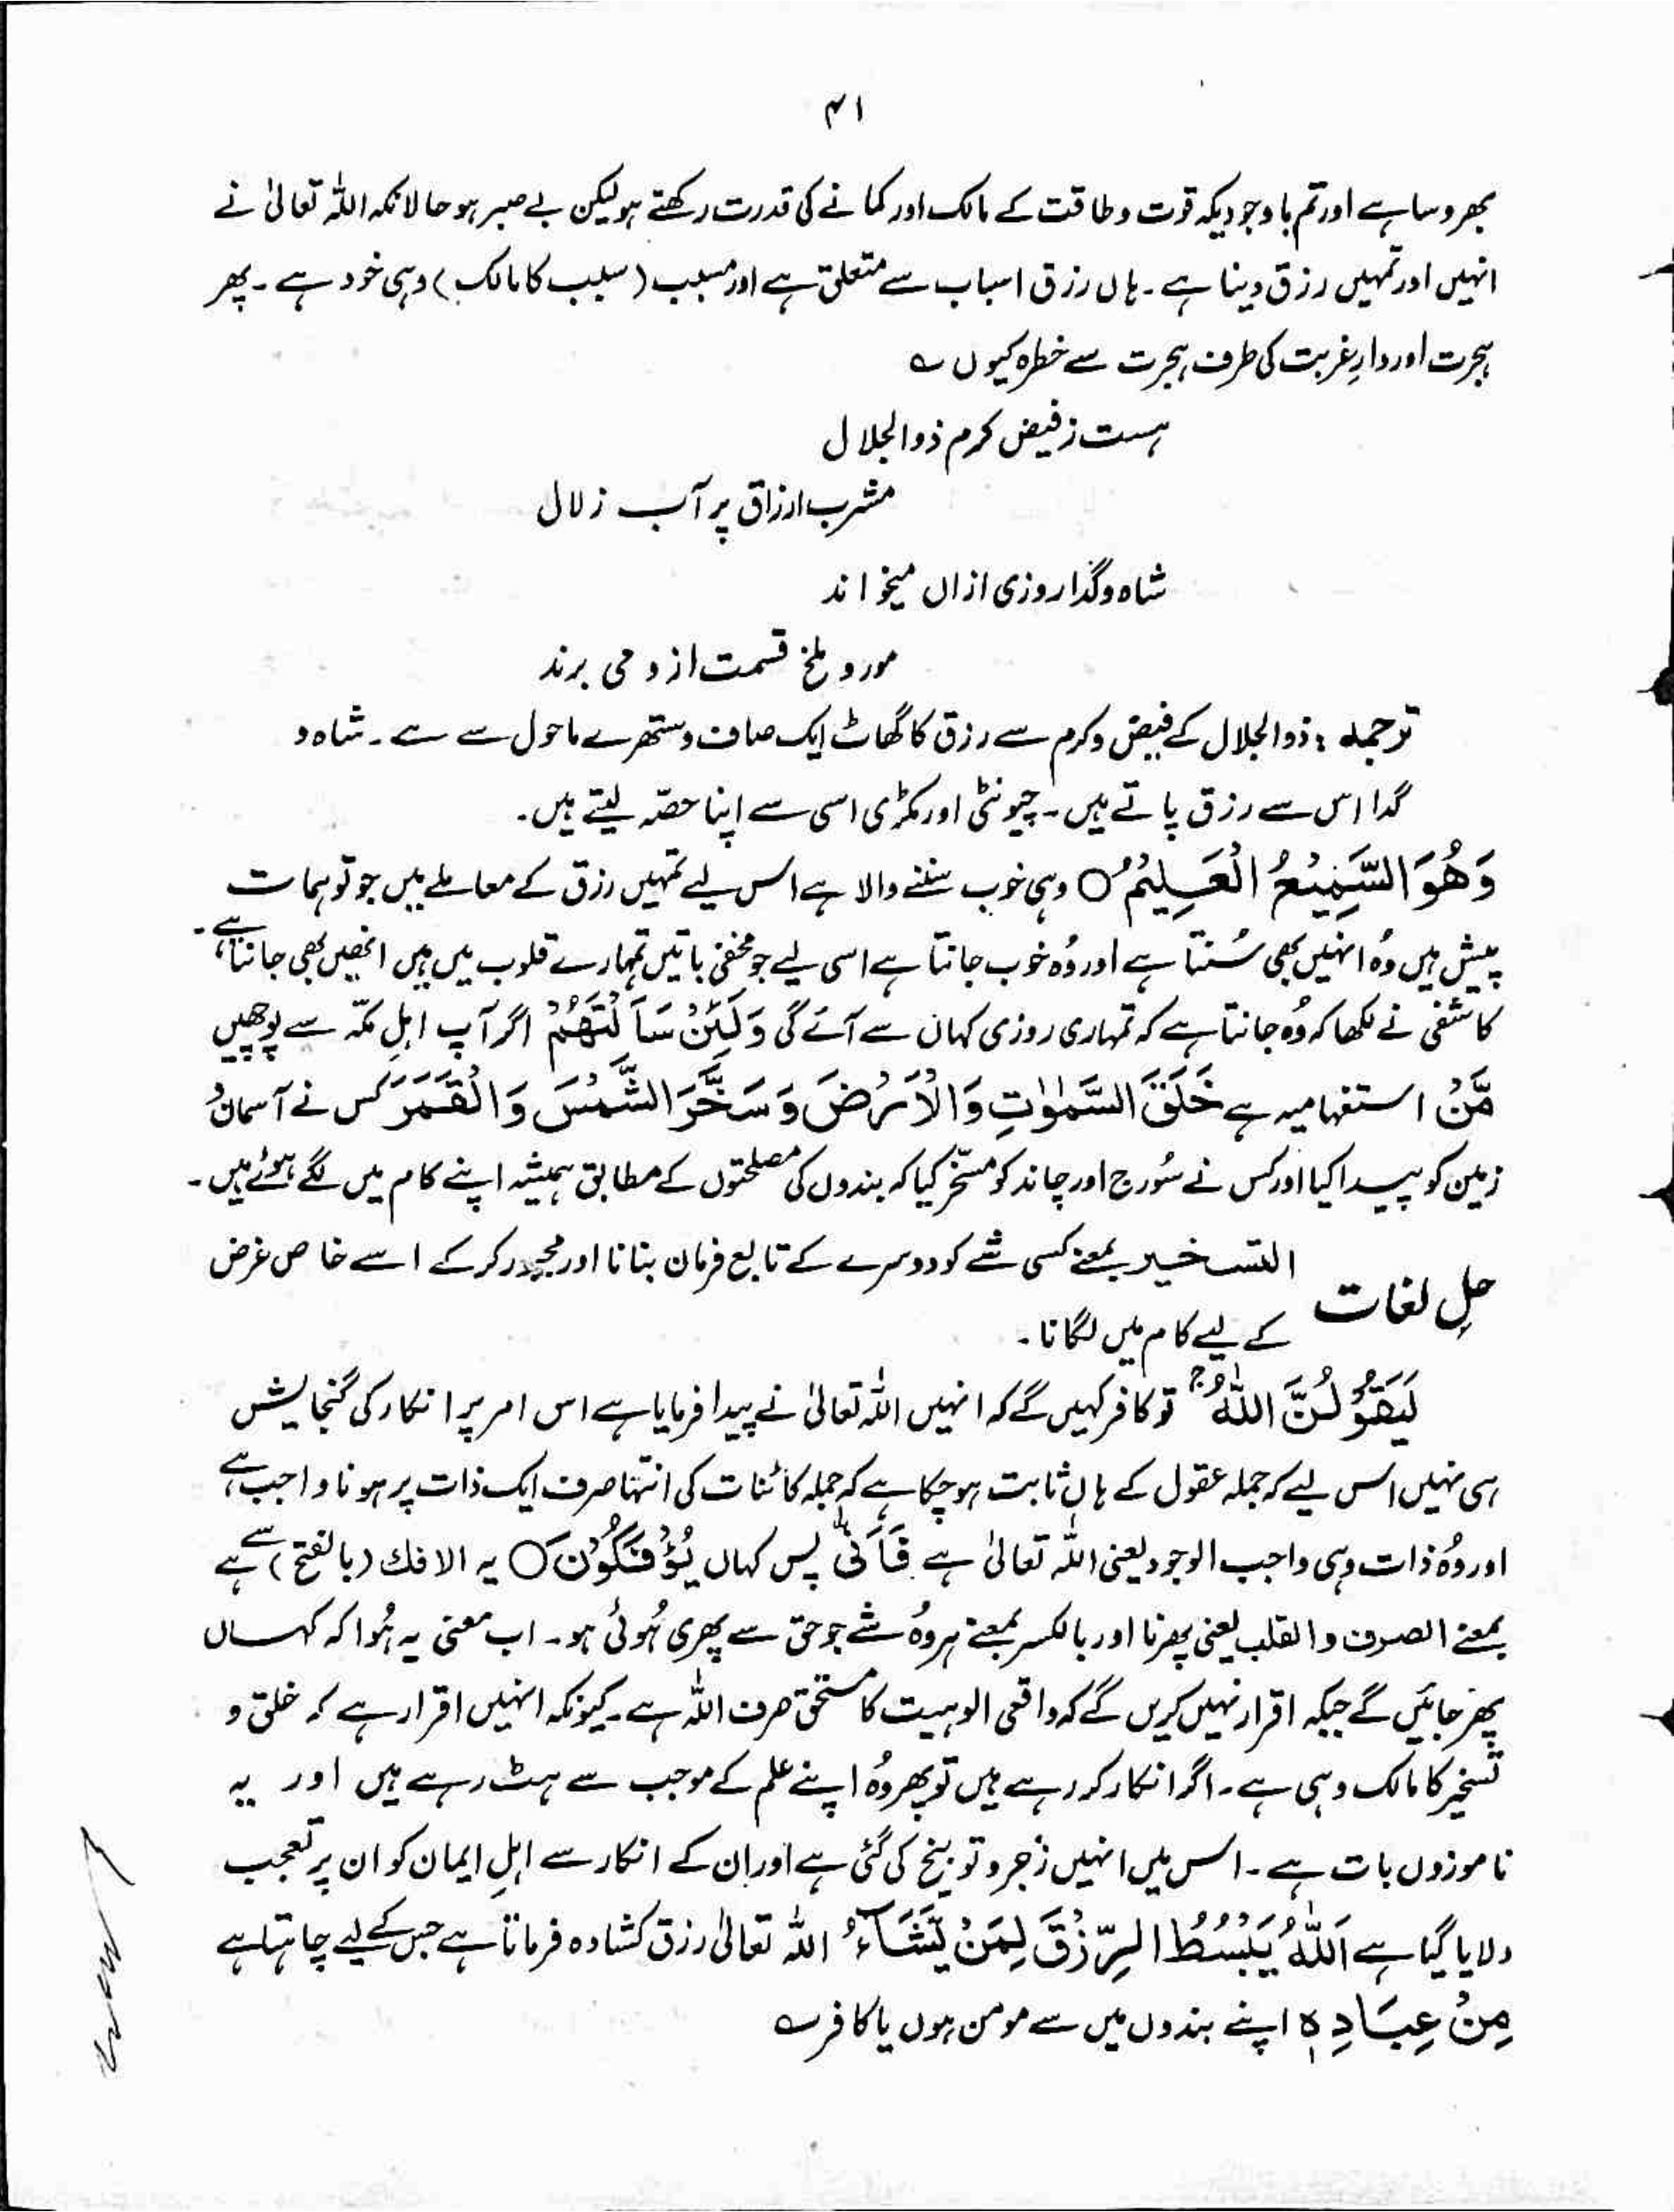 ۴۱
بھروسا ہے اور تم باوجودیکہ قوت و طاقت کے مالک اور کمانے کی قدرت رکھتے ہو لیکن بے صبر ہو حالانکہ اللہ تعالیٰ نے
انہیں اور تمہیں رزق دینا ہے۔ ہاں رزق اسباب سے متعلق ہے اور مسبب (سبب کا مالک) وہی خود ہے۔ پھر
ہجرت اور دارِ غربت کی طرف ہجرت سے خطرہ کیوں ؎
ہست ز فیض کرم ذوالجلال
مشرب ارزاق پر آب زلال
شاہ و گدا روزی ازاں میخواند
مور و ملخ قسمت ازو می برند
ترجمہ : ذوالجلال کے فیض و کرم سے رزق کا گھاٹ ایک صاف و ستھرے ماحول سے ہے۔ شاہ و
گدا اس سے رزق پاتے ہیں۔ چیونٹی اور مکڑی اسی سے اپنا حصّہ لیتے ہیں۔
وَهُوَ السَّمِيْعُ الْعَلِيْمُ ○ وہی خوب سننے والا ہے اس لیے تمہیں رزق کے معاملے میں جو توہمات
پیش ہیں وُہ انہیں بھی سُنتا ہے اور وُہ خوب جانتا ہے اسی لیے جو مخفی باتیں تمہارے قلوب میں ہیں انھیں بھی جانتا ہے۔
کاشفی نے لکھا کہ وُہ جانتا ہے کہ تمہاری روزی کہاں سے آئے گی وَلَئِنْ سَاَلْتَهُمْ اگر آپ اہلِ مکّہ سے پوچھیں
مَّنْ استفہامیہ ہے خَلَقَ السَّمٰوٰتِ وَالْاَرْضَ وَسَخَّرَ الشَّمْسَ وَالْقَمَرَ کس نے آسمان و
زمین کو پیدا کیا اور کس نے سُورج اور چاند کو مسخّر کیا کہ بندوں کی مصلحتوں کے مطابق ہمیشہ اپنے کام میں لگے ہُوئے ہیں۔
حلِ لغات التسخیر بمعنے کسی شے کو دوسرے کے تابع فرمان بنانا اور مجبور کرکے اسے خاص غرض
کے لیے کام میں لگانا۔
لَيَقُوْلُنَّ اللّٰهُ ۚ تو کافر کہیں گے کہ انہیں اللہ تعالیٰ نے پیدا فرمایا ہے اس امر پر انکار کی گنجایش
ہی نہیں اس لیے کہ جملہ عقول کے ہاں ثابت ہو چکا ہے کہ جملہ کائنات کی انتہا صرف ایک ذات پر ہونا واجب ہے
اور وُہ ذات وہی واجب الوجود یعنی اللہ تعالیٰ ہے فَاَنّٰی پس کہاں يُؤْفَكُوْنَ ○ یہ الافك (بالفتح) سے ہے
بمعنے الصرف والقلب یعنی پھرنا اور بالکسر بمعنے ہر وُہ شے جو حق سے پھری ہُوئی ہو۔ اب معنی یہ ہُوا کہ کہاں
پھر جائیں گے جبکہ اقرار نہیں کریں گے کہ واقعی الوہیت کا مستحق صرف اللہ ہے۔ کیونکہ انہیں اقرار ہے کہ خلق و
تسخیر کا مالک وہی ہے۔ اگر انکار کر رہے ہیں تو پھر وُہ اپنے علم کے موجب سے ہٹ رہے ہیں اور یہ
ناموزوں بات ہے۔ اس میں انہیں زجر و توبیخ کی گئی ہے اور ان کے انکار سے اہلِ ایمان کو ان پر تعجب
دلایا گیا ہے اَللّٰهُ يَبْسُطُ الرِّزْقَ لِمَنْ يَّشَآءُ اللہ تعالیٰ رزق کشادہ فرماتا ہے جس کے لیے چاہتا ہے
مِنْ عِبَادِهٖ اپنے بندوں میں سے مومن ہوں یا کافر ؎